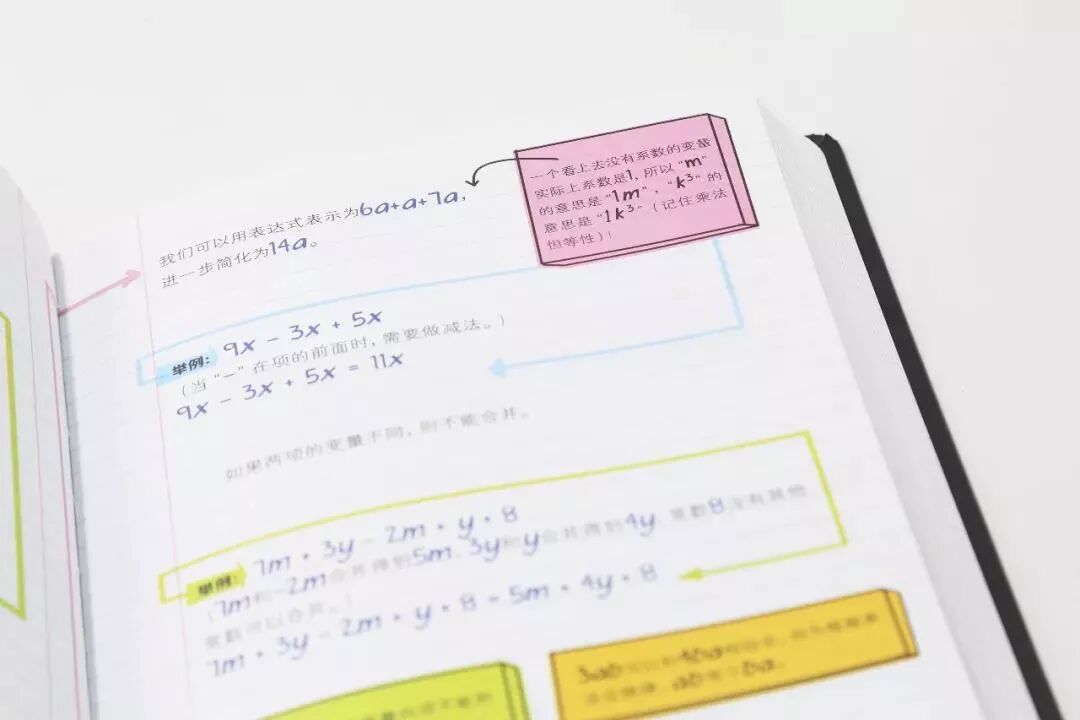 一个看上去没有系数的变量
实际上系数是1，所以“m”
的意思是“1m”，“k³”的
意思是“1k³”（记住乘法
恒等性）！
我们可以用表达式表示为6a+a+7a，
进一步简化为14a。
举例： 9x − 3x + 5x
（当“−”在项的前面时，需要做减法。）
9x − 3x + 5x = 11x
如果两项的变量不同，则不能合并。
举例： 7m + 3y − 2m + y + 8
（7m和−2m合并得到5m，3y和y合并得到4y，常数8没有其他
常数可以合并。）
7m + 3y − 2m + y + 8 = 5m + 4y + 8
3ab可以和4ba
ab等于ba。